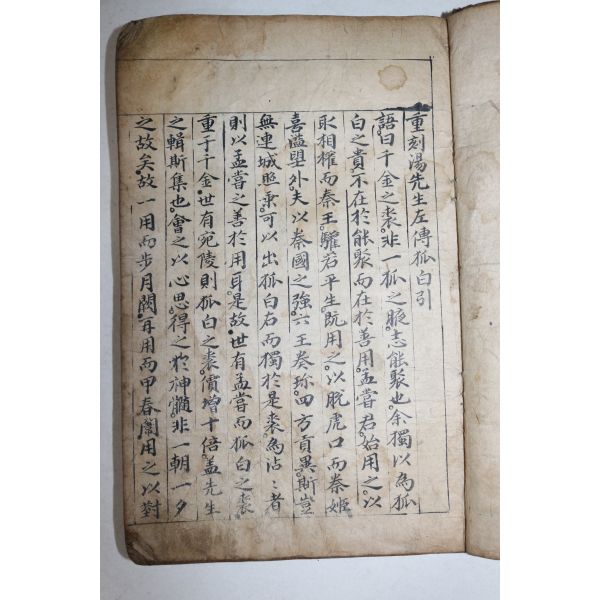 重刻湯先生左傳狐白引
語曰千金之裘非一狐之腋志能聚也余獨以為狐
白之貴不在於能聚而在於善用孟嘗君始用之以
取相權而秦王驩若平生旣用之以脫虎口而秦姬
喜溢望外夫以秦國之強六王奏珍四方貢異斯豈
無連城照乗可以出狐白右而獨於是裘為沾〻者
則以孟嘗之善於用耳是故世有孟嘗而狐白之裘
重于千金世有宛陵則狐白之裘價增十倍盖先生
之輯斯集也會之以心思得之於神髓非一朝一夕
之故矣故一用而步月闕再用而甲春闈用之以對